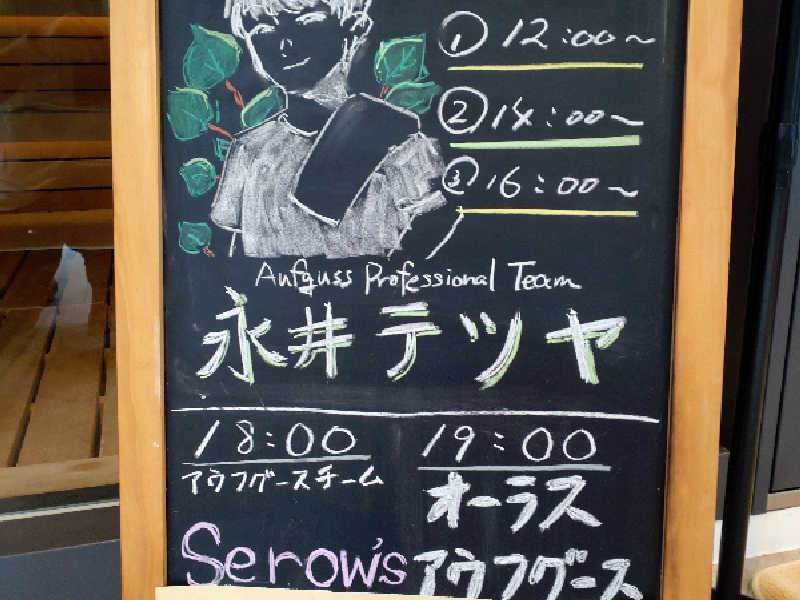 ① 12:00～
② 14:00～
③ 16:00～
Aufguss Professional Team
永井テツヤ
18:00
アウフグースチーム
Serow's
19:00
オーラス
アウフグース